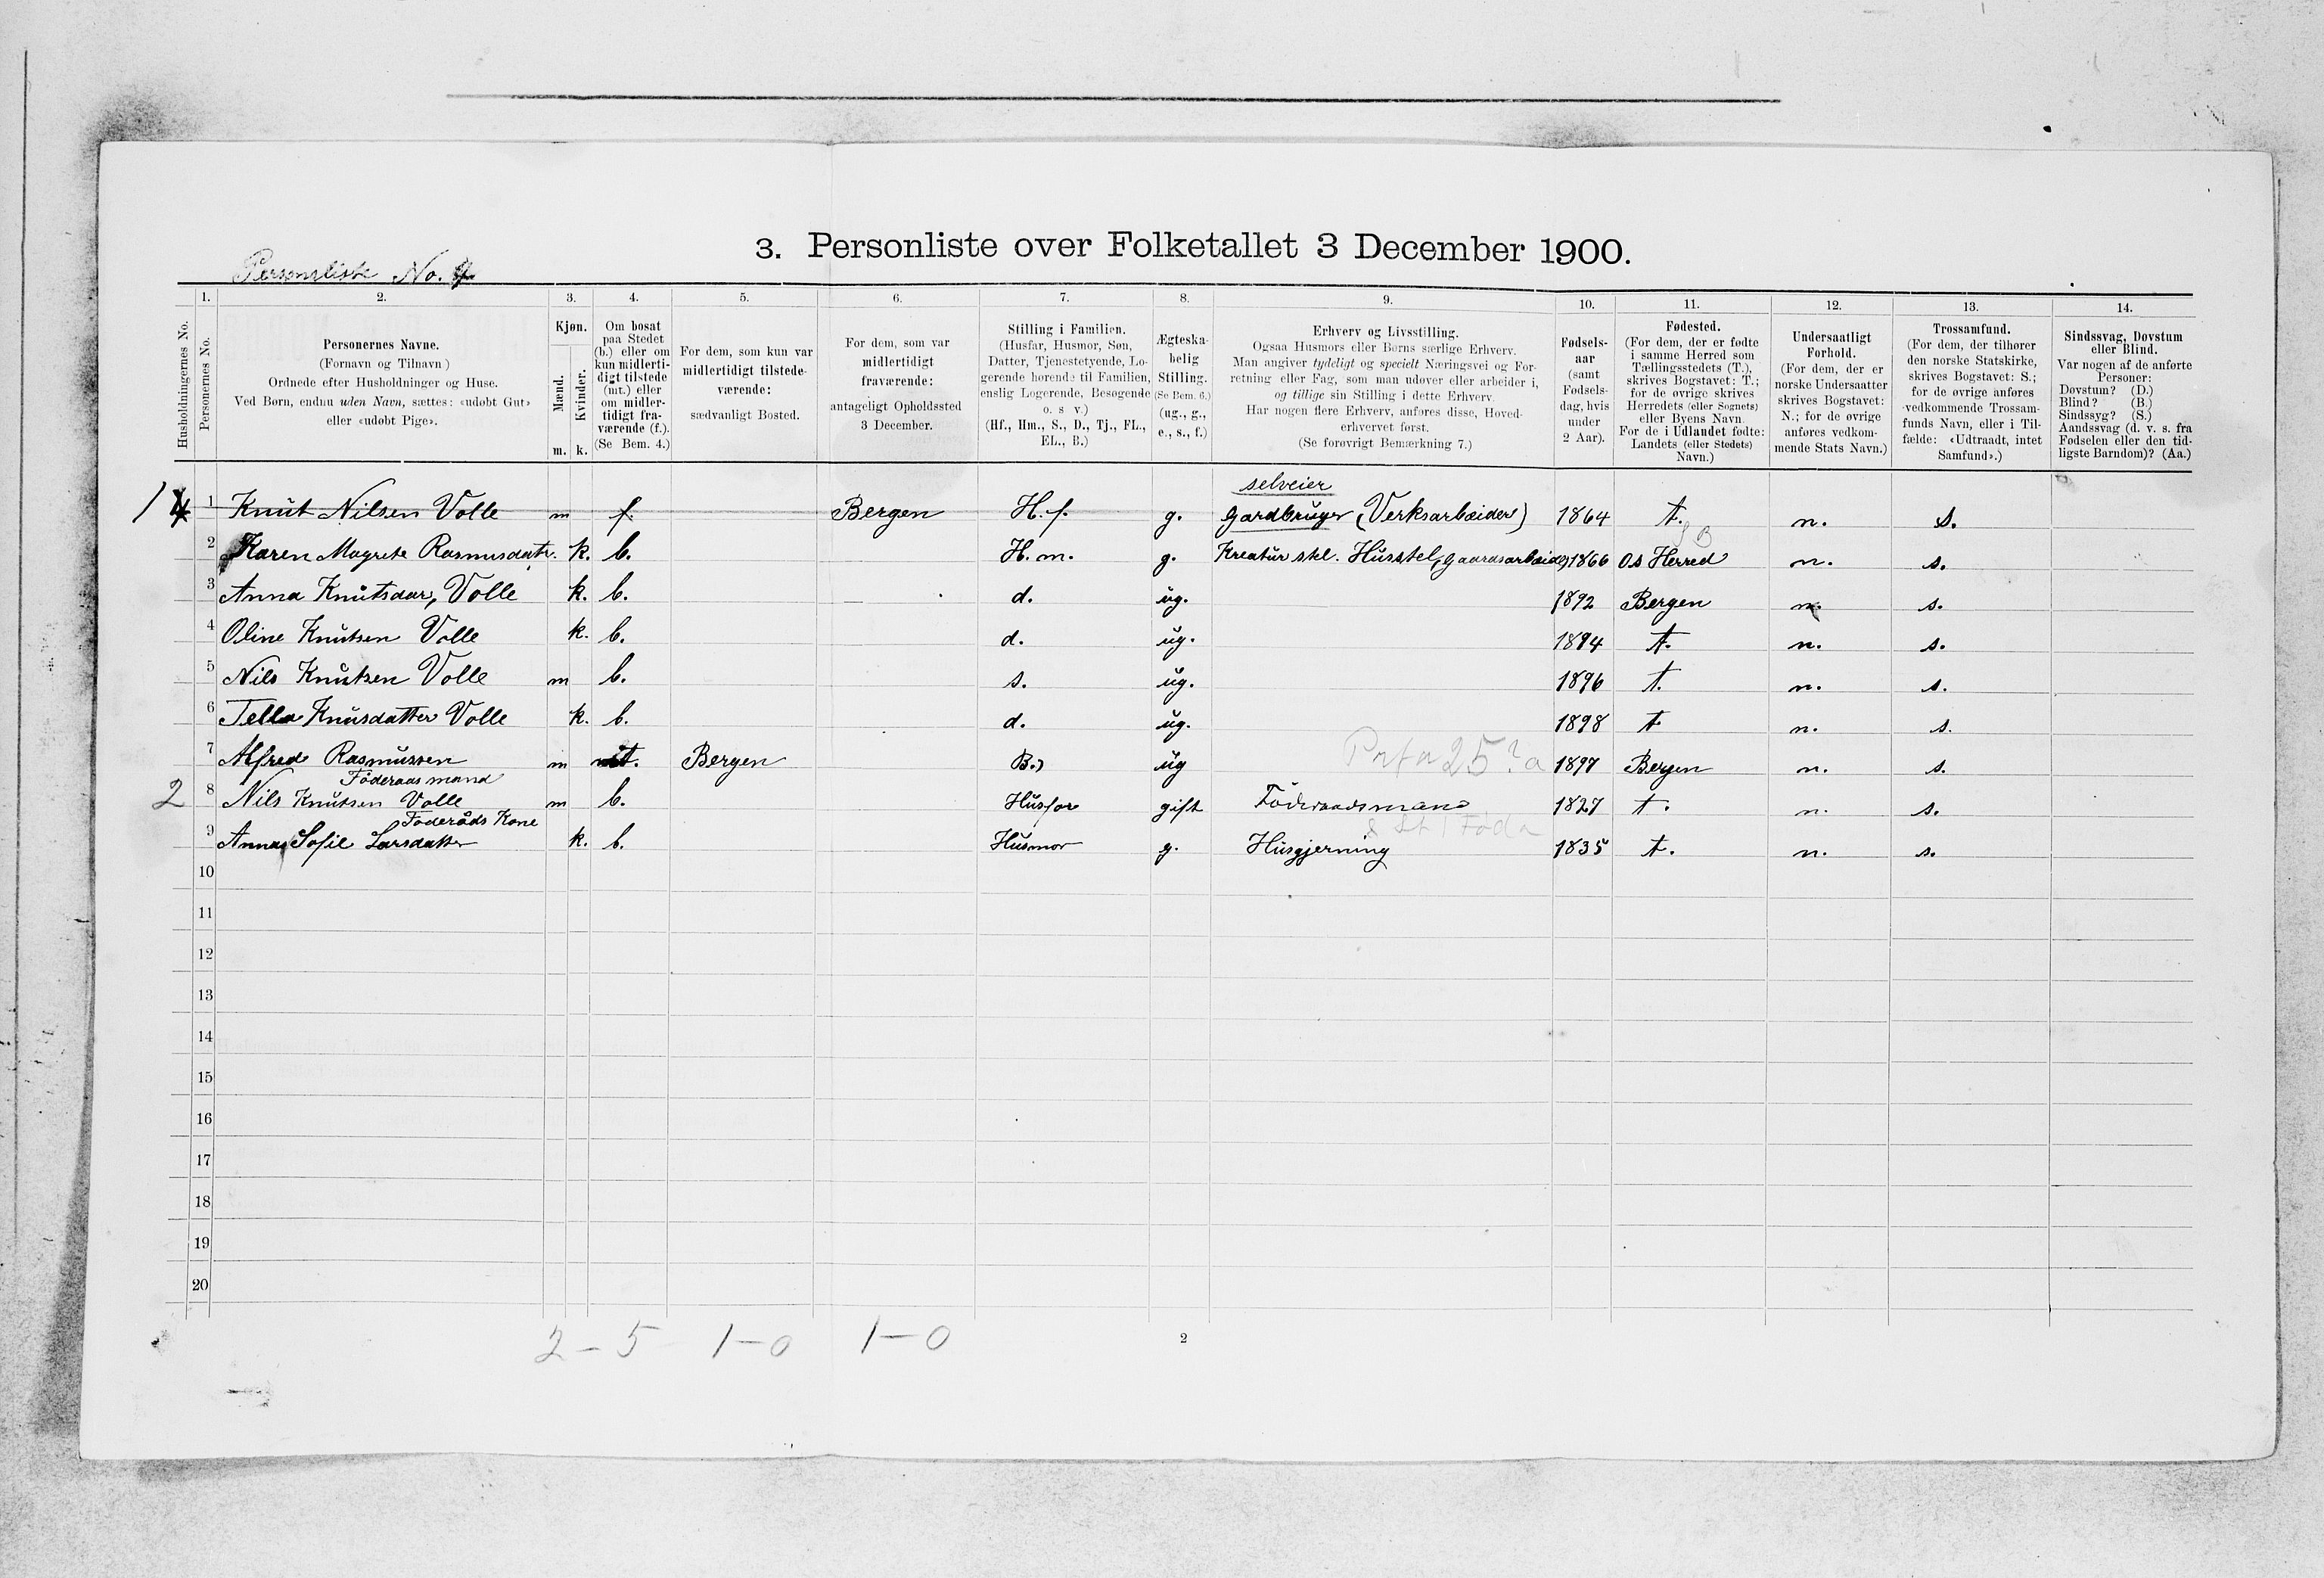 3. Personliste over Folketallet 3 December 1900.
Personliste No.
1. 2. 3. 4. 5. 6. 7. 8. 9. 10. 11. 12. 13. 14.
Husholdningernes No.
Personernes No.
Personernes Navne.
(Fornavn og Tilnavn)
Ordnede efter Husholdninger og Huse.
Ved Børn, endnu uden Navn, sættes: «udøbt Gut»
eller «udøbt Pige».
Kjøn.
Mænd.
Kvinder.
m. k.
Om bosat
paa Stedet
(b.) eller om
kun midlerti-
digt tilstede
(mt.) eller
om midler-
tidigt fra-
værende (f.).
(Se Bem. 4.)
For dem, som kun var
midlertidigt tilstede-
værende:
sædvanligt Bosted.
For dem, som var
midlertidigt
fraværende:
antageligt Opholdssted
3 December.
Stilling i Familien.
(Husfar, Husmor, Søn,
Datter, Tjenestetyende, Lo-
gerende hørende til Familien,
enslig Logerende, Besøgende
o. s v.)
(Hf., Hm., S., D., Tj., FL.,
EL., B.)
Ægteska-
belig
Stilling.
(Se Bem. 6.)
(ug., g.,
e., s., f.)
Erhverv og Livsstilling.
Ogsaa Husmors eller Børns særlige Erhverv.
Man angiver tydeligt og specielt Næringsvei og For-
retning eller Fag, som man udøver eller arbeider i,
og tillige sin Stilling i dette Erhverv.
Har nogen flere Erhverv, anføres disse, Hoved-
erhvervet først.
(Se forøvrigt Bemærkning 7.)
Fødsels-
aar
(samt
Fødsels-
dag, hvis
under
2 Aar).
Fødested.
(For dem, der er fødte
i samme Herred som
Tællingsstedets (T.),
skrives Bogstavet: T.;
for de øvrige skrives
Herredets (eller Sognets)
eller Byens Navn.
For de i Udlandet fødte:
Landets (eller Stedets)
Navn.)
Undersaatligt
Forhold.
(For dem, der er
norske Undersaatter
skrives Bogstavet:
N.; for de øvrige
anføres vedkom-
mende Stats Navn.)
Trossamfund.
(For dem, der tilhører
den norske Statskirke,
skrives Bogstavet: S.;
for de øvrige anføres
vedkommende Trossam-
funds Navn, eller i Til-
fælde: «Udtraadt, intet
Samfund».)
Sindssvag, Døvstum
eller Blind.
Var nogen af de anførte
Personer:
Døvstum? (D.)
Blind? (B.)
Sindssyg? (S.)
Aandssvag (d. v. s. fra
Fødselen eller den tid-
ligste Barndom)? (Aa.)
selveier
1 1 Knut Nilsen Volle m f. Bergen H. f. g. gardbruger (Verksarbeider) 1864 t. n. s.
2 Karen Magrete Rasmusdatr. k. b. H. m. g. Kreatur stel. Husstel, gaardsarbeide 1866 Os Herred n. s.
3 Anna Knutsdar, Volle k. b. d. ug. 1892 Bergen n. s.
4 Oline Knutsen Volle k. b. d. ug. 1894 t. n. s.
5 Nils Knutsen Volle m b. s. ug. 1896 t. n. s.
6 Tella Knusdatter Volle k. b. d. ug. 1898 t n. s.
7 Alfred Rasmussen m mt. Bergen B. ug 1897 Bergen n. s.
Föderaas mand
2 8 Nils Knutsen Volle m b. Husfar gift Föderaadsmand 1827 t. n. s.
Föderåds Kone
9 Anna Sofie Larsdatter k. b. Husmor g. Husgjerning 1835 t. n. s.
10
11
12
13
14
15
16
17
18
19
20
2 - 5 1 - 0 1 - 0
2